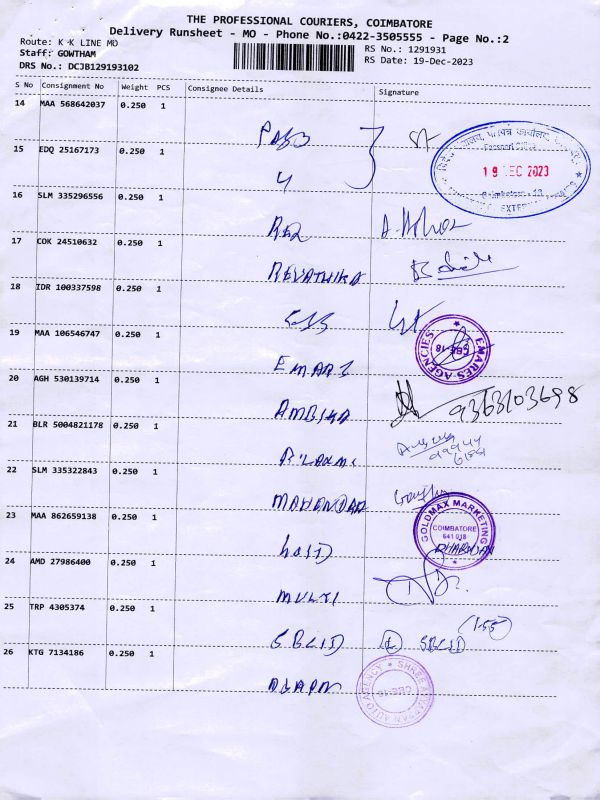 THE PROFESSIONAL COURIERS, COIMBATORE
Delivery Runsheet - MO - Phone No.:0422-3505555 - Page No.:2
Route: K K LINE MO
RS No.: 1291931
Staff: GOWTHAM
RS Date: 19-Dec-2023
DRS No.: DCJB129193102
S No Consignment No Weight PCS Consignee Details Signature
14 MAA 568642037 0.250 1
15 EDQ 25167173 0.250 1
Passport Office
19 DEC 2023
16 SLM 335296556 0.250 1
17 COK 24510632 0.250 1
REVATHIKA
18 IDR 100337598 0.250 1
19 MAA 106546747 0.250 1
EMARES AGENCIES
CBE-18
20 AGH 530139714 0.250 1
AMBIKA
9363103698
21 BLR 5004821178 0.250 1
22 SLM 335322843 0.250 1
MAHENDAR
23 MAA 862659138 0.250 1
GOLDMAX MARKETING
COIMBATORE
641 018
24 AMD 27986400 0.250 1
MULTI
25 TRP 4305374 0.250 1
SBCID
SBCID
26 KTG 7134186 0.250 1